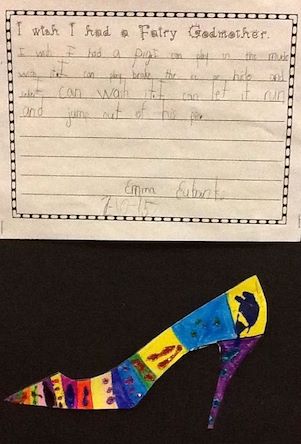 I wish I had a Fairy Godmother.
I wish I had a pigt can play in the mude
with it I can play brake the and
wan can wan it can let it run
and jump out of his pen
Emma
7-10-15